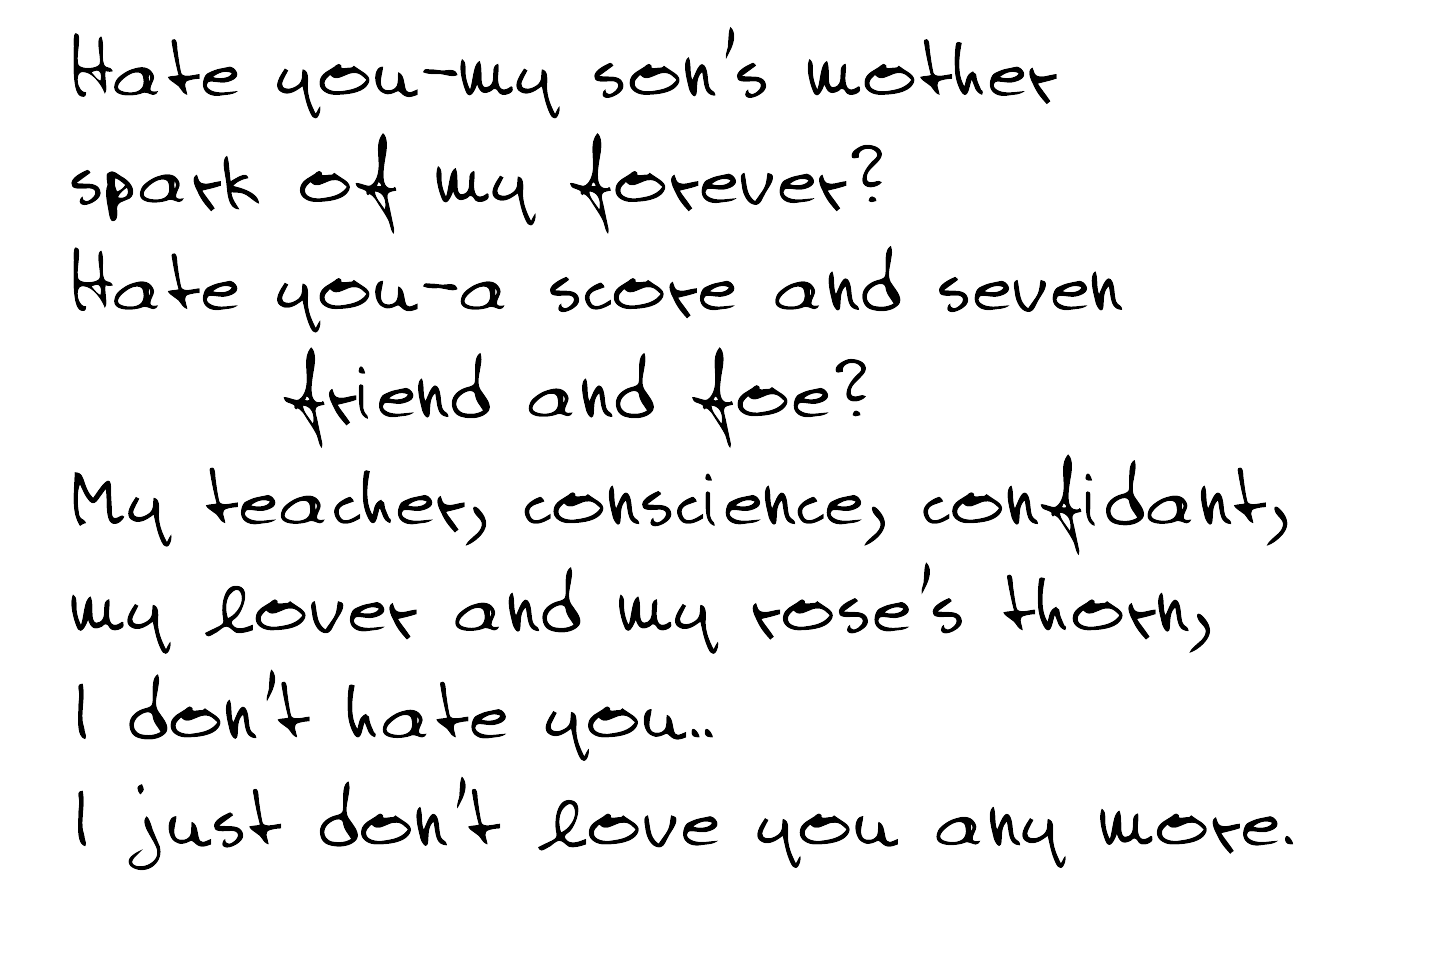 Hate you-my son's mother
spark of my forever?
Hate you-a score and seven
friend and foe?
My teacher, conscience, confidant,
my lover and my rose's thorn,
I don't hate you..
I just don't love you any more.